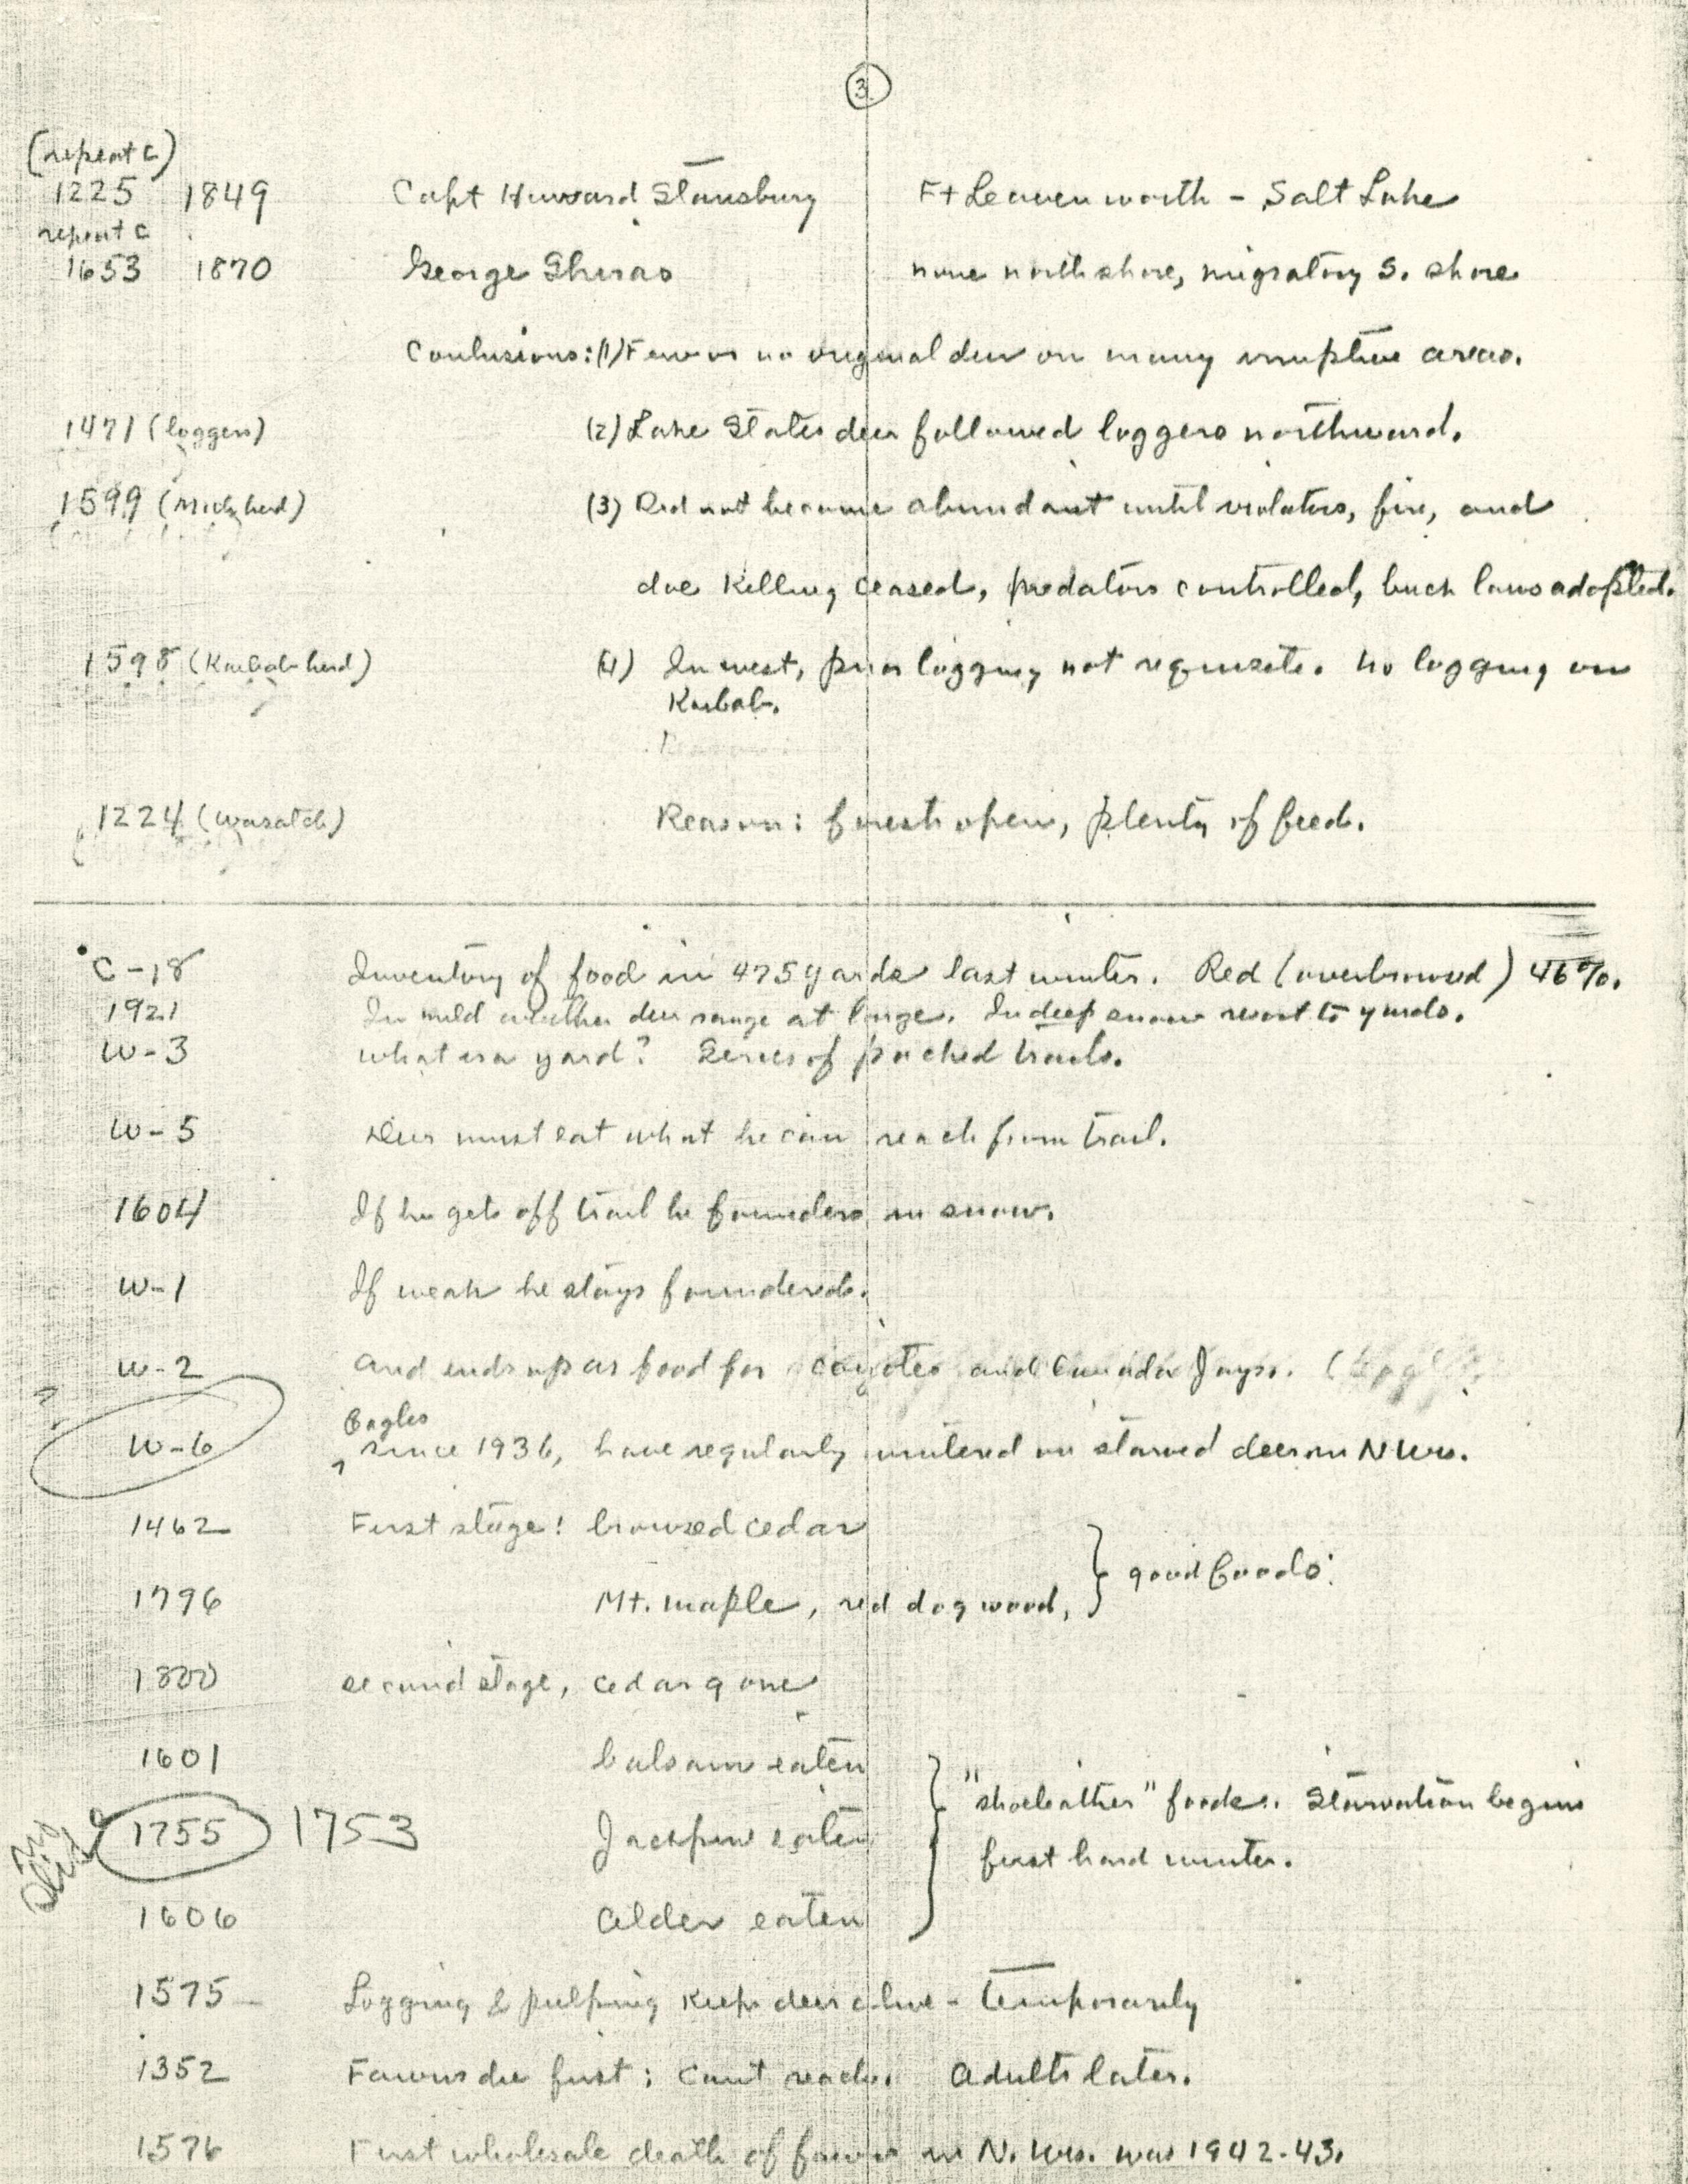 3
(repeat C)
1225 1849 Capt Howard Stansbury Ft Leavenworth - Salt Lake
repeat C
1653 1870 George Shiras none north shore, migratory S. shore
Conclusions: (1) Few or no original deer on many irruptive areas.
1471 (loggers) (2) Lake States deer followed loggers northward.
1599 (Mich herd) (3) Did not become abundant until violators, fire, and
doe killing ceased, predators controlled, buck laws adopted.
1598 (Kaibab herd) (4) In west, prior logging not requisite. No logging on
Kaibab.
1224 (Wasatch) Reason: forests open, plenty of feed.
C-18 Inventory of food in 475 yards last winter. Red (overbrowsed) 46%.
1921 In mild weather deer range at large. In deep snow resort to yards.
W-3 What is a yard? Series of packed trails.
W-5 Deer must eat what he can reach from trail.
1604 If he gets off trail he founders in snow.
W-1 If weak he stays foundered.
W-2 And ends up as food for coyotes and Canada Jays.
Eagles
W-6 since 1936, have regularly wintered on starved deer in N Wis.
1462 First stage: browsed cedar
1796 Mt. maple, red dogwood, } good foods
1800 second stage, cedar gone
1601 balsam eaten
"shoeleather" foods. Starvation begins
1755 1753 Jackpine eaten
first hard winter.
1606 Alder eaten
1575 Logging & pulping keep deer alive - temporarily
1352 Fawns die first; can't reach. Adults later.
1576 First wholesale death of fawns in N. Wis. was 1942-43.